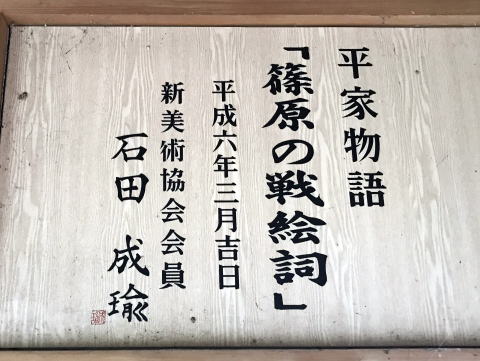 平家物語
「篠原の戦絵詞」
平成六年三月吉日
新美術協会会員
石田 成瑜